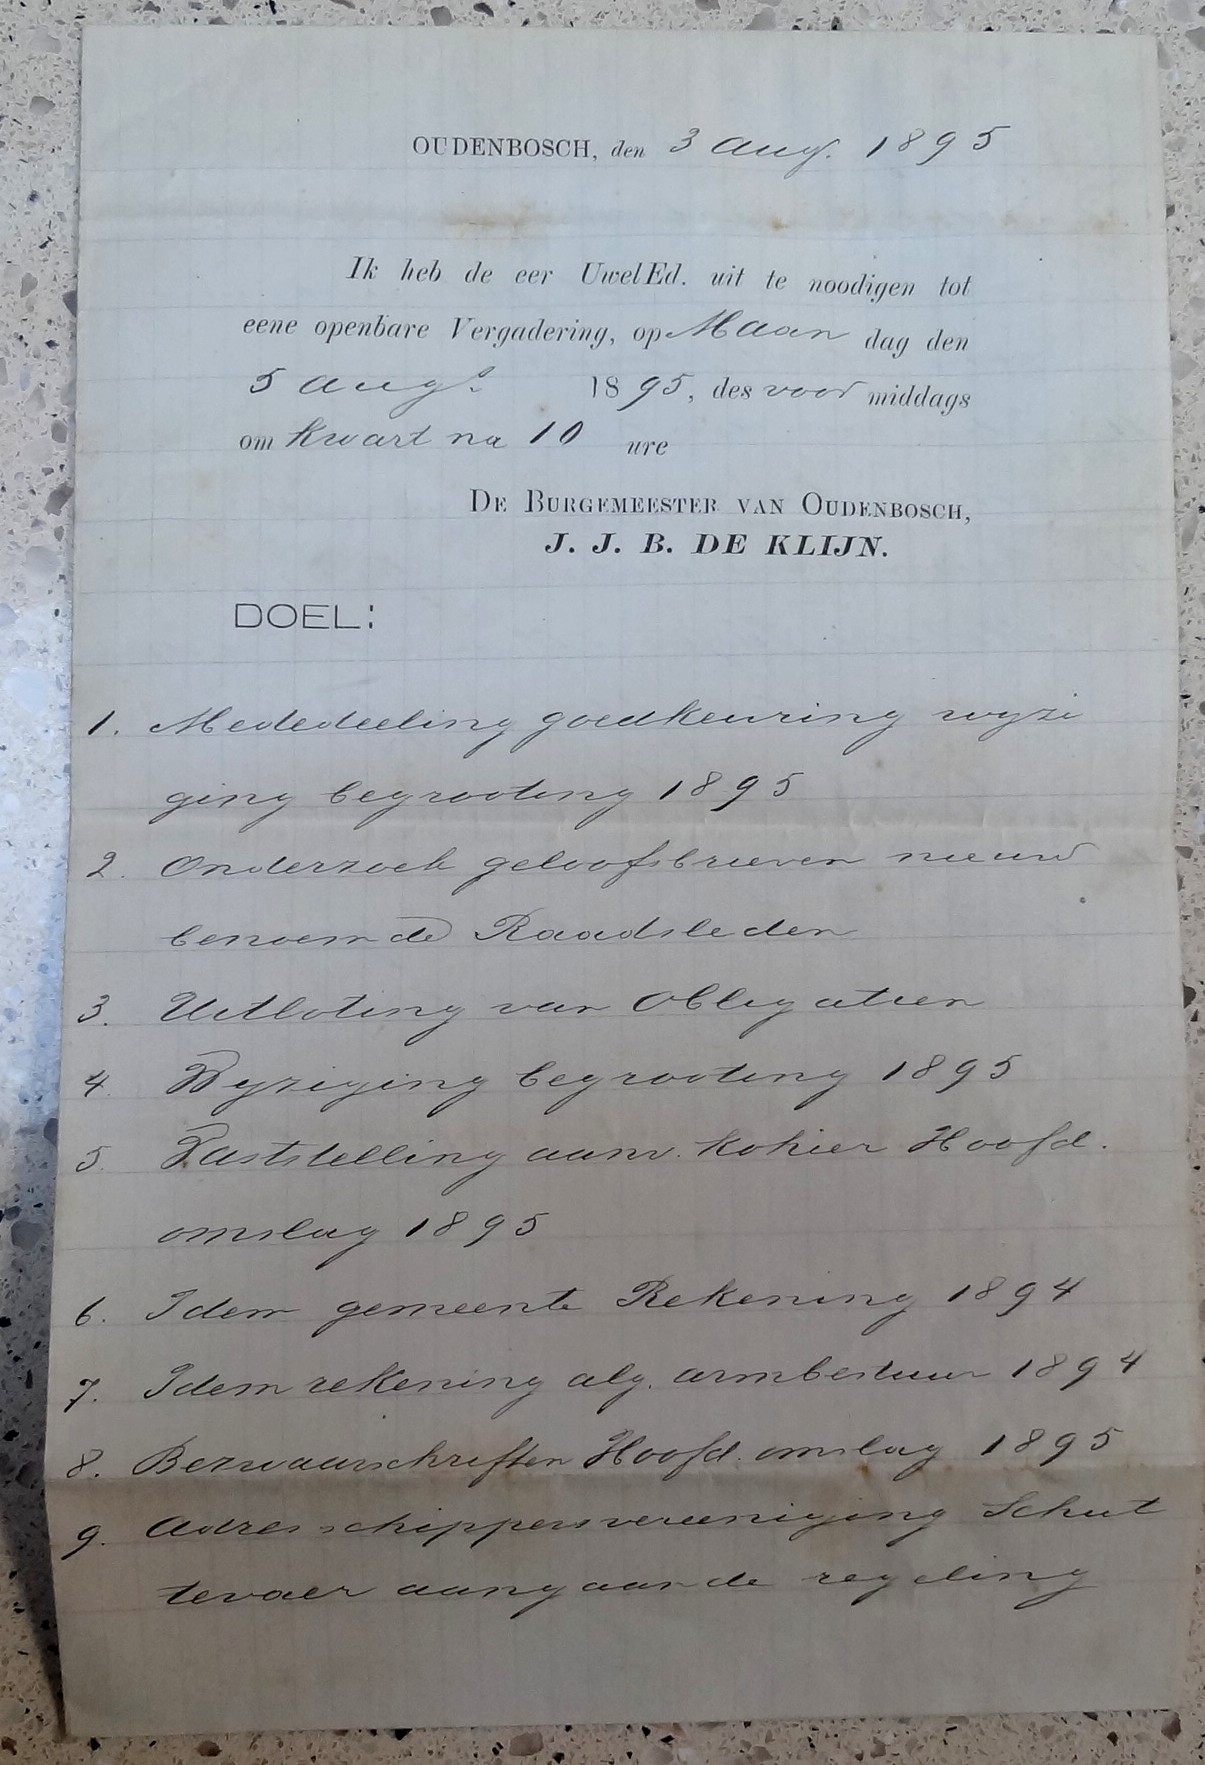 OUDENBOSCH, den 3 Aug. 1895
Ik heb de eer UwelEd. uit te noodigen tot
eene openbare Vergadering, op Maan dag den
5 Augs 1895, des voor middags
om kwart na 10 ure
DE BURGEMEESTER VAN OUDENBOSCH,
J. J. B. DE KLIJN.
DOEL:
1. Mededeeling goedkeuring wyzi
ging begrooting 1895
2. Onderzoek geloofsbrieven nieuw
benoemde Raadsleden
3. Uitloting van Obligatien
4. Wyziging begrooting 1895
5. Vaststelling aanv. kohier Hoofd.
omslag 1895
6. Idem gemeente Rekening 1894
7. Idem rekening alg. armbestuur 1894
8. Bezwaarschriften Hoofd. omslag 1895
9. Adres schippersvereeniging Schut
tevaer aangaande regeling